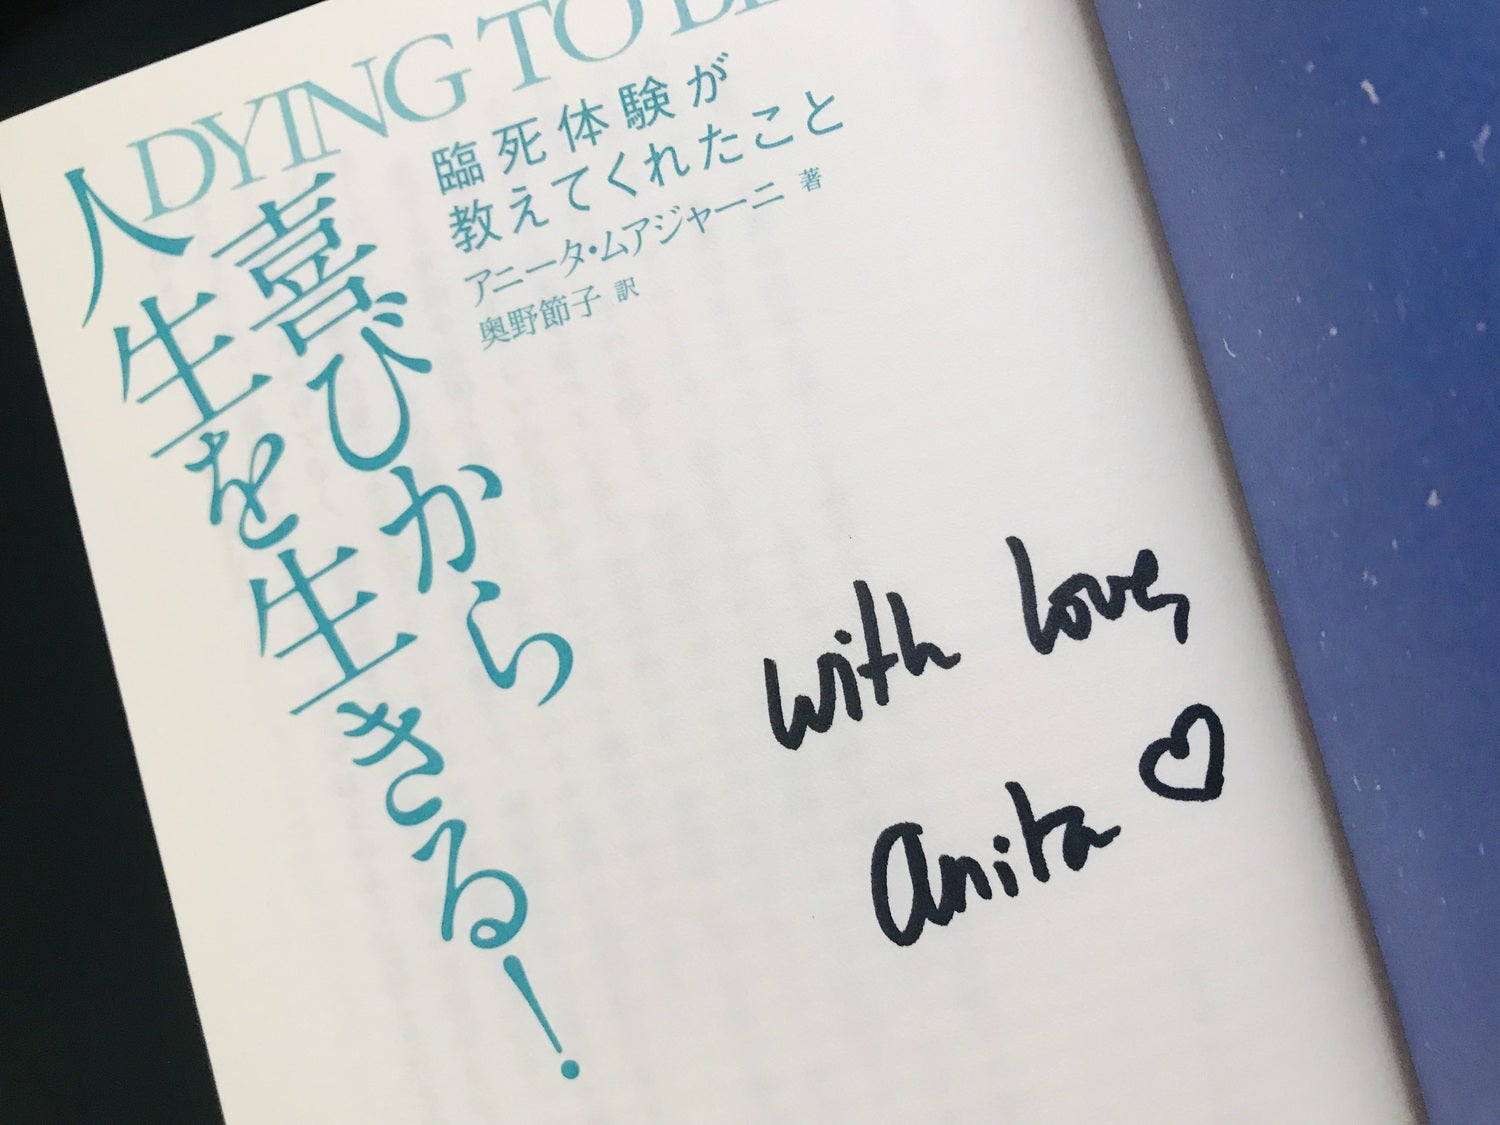 DYING TO BE
臨死体験が
教えてくれたこと
アニータ・ムアジャーニ 著
奥野節子 訳
喜びから
人生を生きる!
with love,
anita ♡